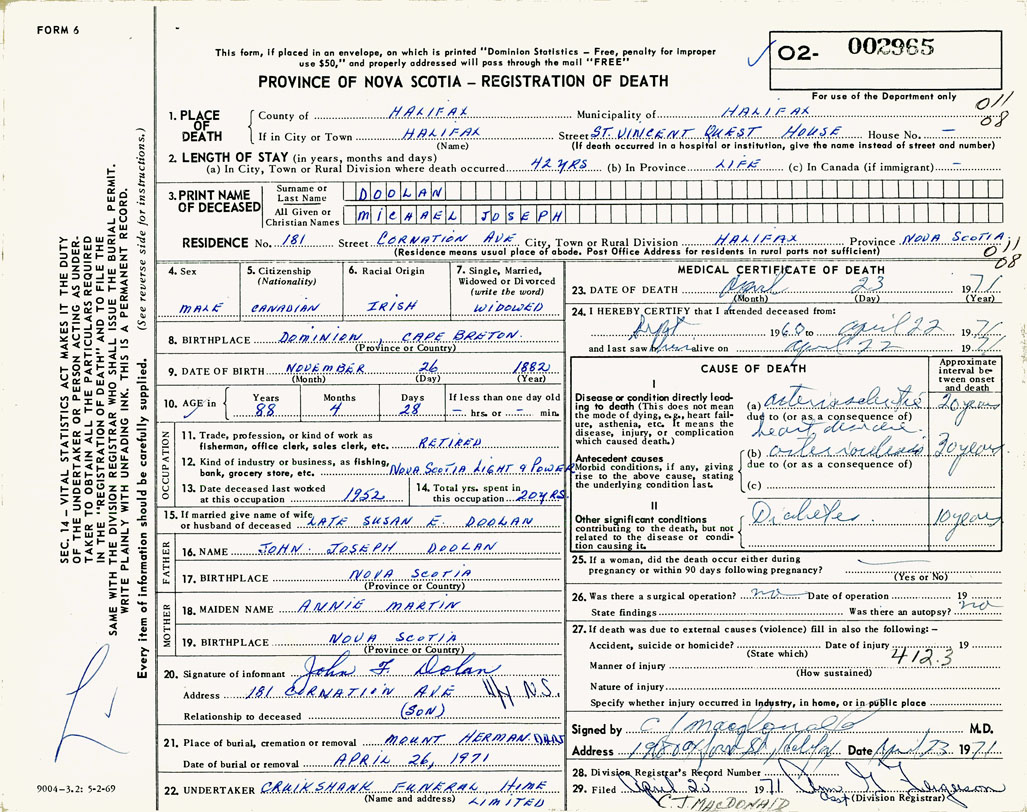 FORM 6
This form, if placed in an envelope, on which is printed "Dominion Statistics – Free, penalty for improper
use $50," and properly addressed will pass through the mail "FREE"
PROVINCE OF NOVA SCOTIA – REGISTRATION OF DEATH
02- 002965
For use of the Department only
011
08
SEC. 14 – VITAL STATISTICS ACT MAKES IT THE DUTY
OF THE UNDERTAKER OR PERSON ACTING AS UNDER-
TAKER TO OBTAIN ALL THE PARTICULARS REQUIRED
IN THE "REGISTRATION OF DEATH" AND TO FILE THE
SAME WITH THE DIVISION REGISTRAR WHO SHALL ISSUE THE BURIAL PERMIT.
WRITE PLAINLY WITH UNFADING INK. THIS IS A PERMANENT RECORD.
Every item of information should be carefully supplied. (See reverse side for instructions.)
1. PLACE OF DEATH
County of HALIFAX Municipality of HALIFAX
If in City or Town HALIFAX Street ST. VINCENT QUEST HOUSE House No. –
(Name) (If death occurred in a hospital or institution, give the name instead of street and number)
2. LENGTH OF STAY (in years, months and days)
(a) In City, Town or Rural Division where death occurred 42 YRS (b) In Province LIFE (c) In Canada (if immigrant) –
3. PRINT NAME OF DECEASED
Surname or Last Name DOOLAN
All Given or Christian Names MICHAEL JOSEPH
RESIDENCE No. 181 Street CORNATION AVE City, Town or Rural Division HALIFAX Province NOVA SCOTIA
(Residence means usual place of abode. Post Office Address for residents in rural parts not sufficient)
011
08
4. Sex
MALE
5. Citizenship (Nationality)
CANADIAN
6. Racial Origin
IRISH
7. Single, Married, Widowed or Divorced (write the word)
WIDOWED
8. BIRTHPLACE DOMINION, CAPE BRETON.
(Province or Country)
9. DATE OF BIRTH NOVEMBER 26 1882
(Month) (Day) (Year)
10. AGE in Years Months Days If less than one day
88 4 28 – hrs. or – min.
OCCUPATION
11. Trade, profession, or kind of work as
fisherman, office clerk, sales clerk, etc. RETIRED
12. Kind of industry or business, as fishing,
bank, grocery store, etc. NOVA SCOTIA LIGHT & POWER
13. Date deceased last worked
at this occupation 1952
14. Total yrs. spent in
this occupation 20 YRS.
15. If married give name of wife
or husband of deceased LATE SUSAN E. DOOLAN
FATHER
16. NAME JOHN JOSEPH DOOLAN
17. BIRTHPLACE NOVA SCOTIA
(Province or Country)
MOTHER
18. MAIDEN NAME ANNIE MARTIN
19. BIRTHPLACE NOVA SCOTIA
(Province or Country)
20. Signature of informant John F. Dolan
Address 181 CORNATION AVE N.S.
Relationship to deceased (SON)
21. Place of burial, cremation or removal MOUNT HERMAN.
Date of burial or removal APRIL 26, 1971
22. UNDERTAKER CRUIKSHANK FUNERAL HOME
(Name and address) LIMITED
9004-3.2: 5-2-69
MEDICAL CERTIFICATE OF DEATH
23. DATE OF DEATH April 23 1971
(Month) (Day) (Year)
24. I HEREBY CERTIFY that I attended deceased from:
Sept 1960 to April 22 1971
and last saw him alive on April 22 1971
CAUSE OF DEATH
Approximate interval between onset and death
I
Disease or condition directly lead-
ing to death (This does not mean
the mode of dying, e.g., heart fail-
ure, asthenia, etc. It means the
disease, injury, or complication
which caused death.)
(a) arteriosclerotic 20 years
due to (or as a consequence of)
heart disease.
Antecedent causes
Morbid conditions, if any, giving
rise to the above cause, stating
the underlying condition last.
(b) arteriosclerosis 30 years
due to (or as a consequence of)
(c)
II
Other significant conditions
contributing to the death, but not
related to the disease or condi-
tion causing it.
Diabetes. 10 years
25. If a woman, did the death occur either during
pregnancy or within 90 days following pregnancy?
(Yes or No)
26. Was there a surgical operation? no Date of operation 19
State findings Was there an autopsy? no
27. If death was due to external causes (violence) fill in also the following: –
Accident, suicide or homicide? Date of injury 19
(State which) 412.3
Manner of injury
(How sustained)
Nature of injury
Specify whether injury occurred in industry, in home, or in public place
Signed by C J MacDonald M.D.
Address Oxford St, Halifax Date April 23 1971
28. Division Registrar's Record Number
29. Filed April 23 1971
(Division Registrar)
C. J. MACDONALD